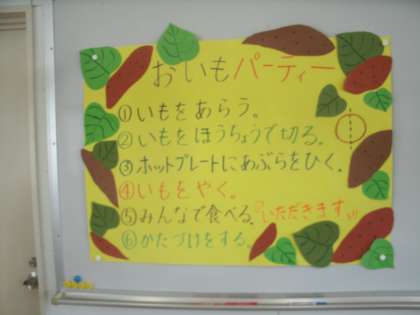 おいもパーティー
①いもをあらう。
②いもをほうちょうで切る。
③ホットプレートにあぶらをひく。
④いもをやく。
⑤みんなで食べる。いただきます!!
⑥かたづけをする。